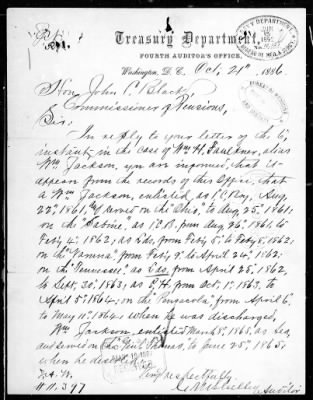 Treasury Department,
FOURTH AUDITOR'S OFFICE,
Washington, D.C. Oct. 21st 1886
Hon. John C. Black,
Commissioner of Pensions,
Sir:
In reply to your letter of the 6,
instant, in the case of Wm H. Faulkner, alias
Wm Jackson, you are informed, that it
appears from the records of this Office, that
a Wm Jackson, enlisted, as 1.C. Boy, Aug.
22d 1861, & served on the Ohio, to Aug. 25, 1861;
on the "Sabine", as 1.C.B. from Aug. 26, 1861, to
Feby 4, 1862; as Lds. from Feby 5, to Feby 8, 1862;
on the from Feby 9, to April 24, 1862;
on the "Tennessee" as Lds, from April 25, 1862,
to Sept. 30, 1863; as from Oct. 1, 1863, to
April 5, 1864; on the "Pensacola" from April 6,
to May 11, 1864, when he was discharged,
Wm. Jackson, enlisted March 8, 1865, as Sea,
and served on the "Genl. Thomas", to June 25, 1865,
when he deserted.
Very respectfully
Auditor
397